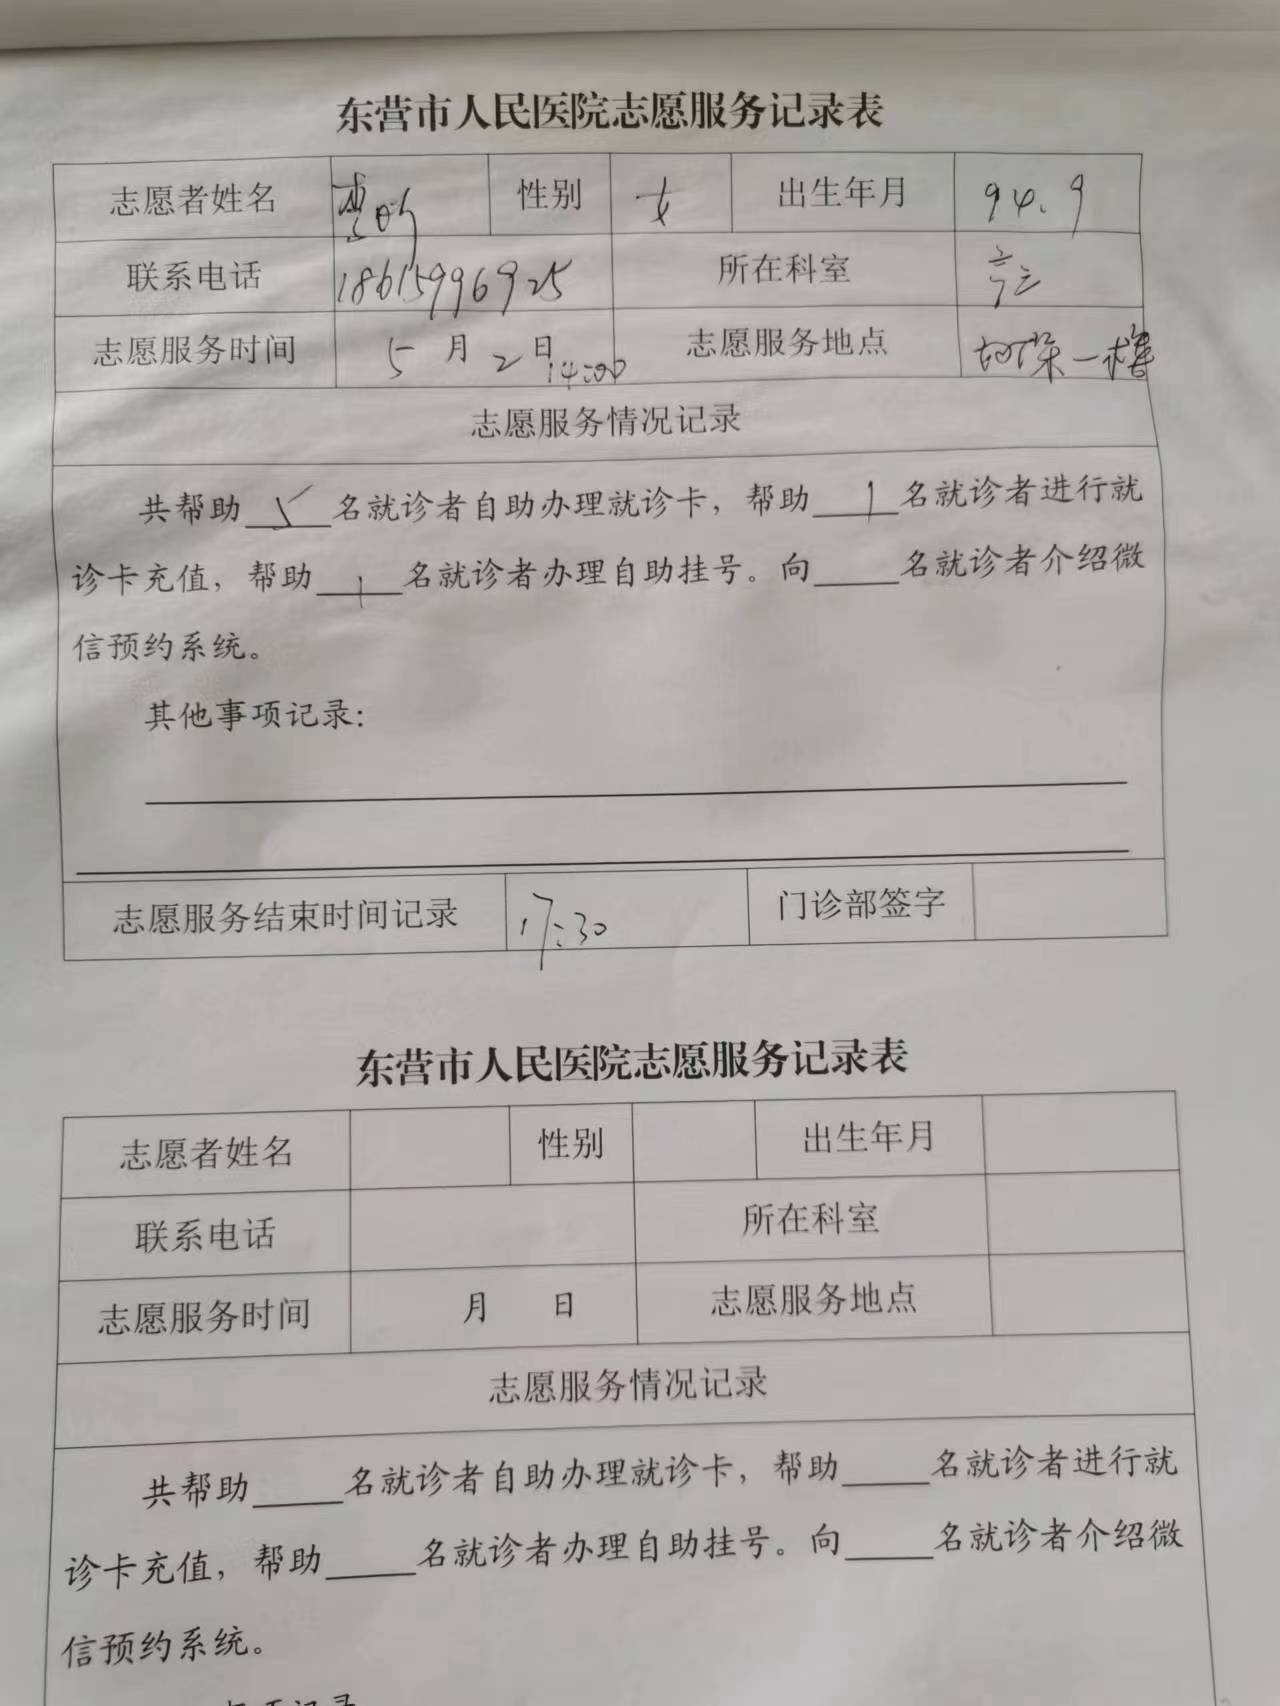 东营市人民医院志愿服务记录表
志愿者姓名 性别 女 出生年月 94.9
联系电话 18615996925 所在科室
志愿服务时间 5月2日 14:00 志愿服务地点 一楼
志愿服务情况记录
共帮助5名就诊者自助办理就诊卡，帮助1名就诊者进行就
诊卡充值，帮助1名就诊者办理自助挂号。向____名就诊者介绍微
信预约系统。
其他事项记录：
志愿服务结束时间记录 17:30 门诊部签字
东营市人民医院志愿服务记录表
志愿者姓名 性别 出生年月
联系电话 所在科室
志愿服务时间 月 日 志愿服务地点
志愿服务情况记录
共帮助____名就诊者自助办理就诊卡，帮助____名就诊者进行就
诊卡充值，帮助____名就诊者办理自助挂号。向____名就诊者介绍微
信预约系统。